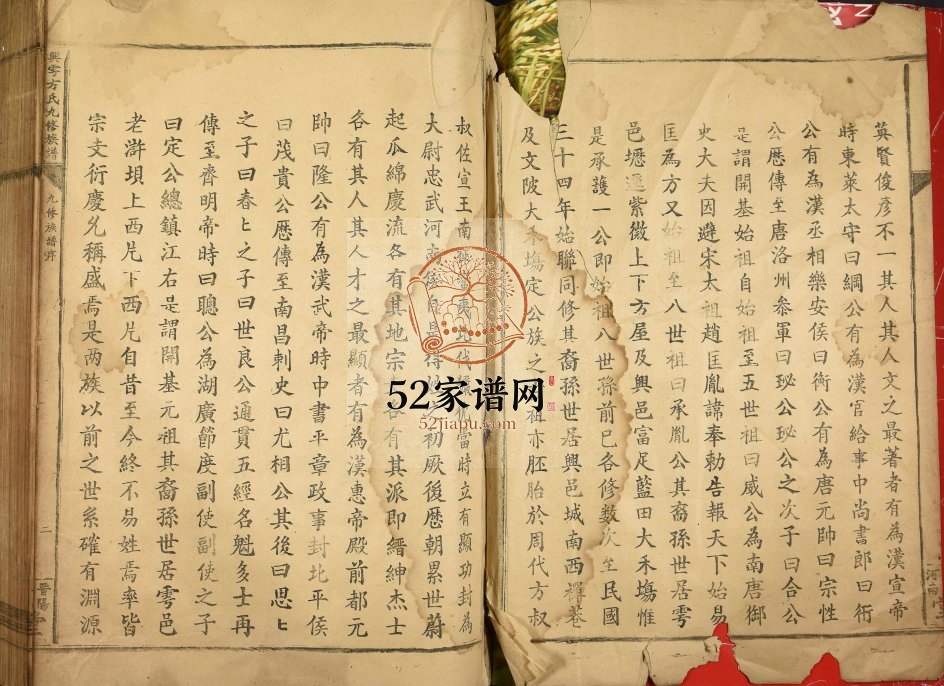 英賢俊彥不一其人其人文之最著者有為漢宣帝
時東萊太守曰綱公有為漢官給事中尚書郎曰衍
公有為漢丞相樂安侯曰衡公有為唐元帥曰宗性
公歷傳至唐洛州叅軍曰珌公珌公之次子曰合公
是謂開基始祖自始祖至五世祖曰威公為南唐御
史大夫因避宋太祖趙匡胤諱奉勅告報天下始易
匡為方又始祖至八世祖曰承胤公其裔孫世居雩
邑壢邉紫微上下方屋及興邑富足藍田大禾塲惟
是承護一公即始祖八世孫前已各修数次至民國
三十四年始聯同修其裔孫世居興邑城南西禪巷
及文陂大禾塲定公族之祖亦胚胎於周代方叔
興雩方氏九修族譜
九修族譜序
二
晉陽堂
河南堂
叔佐宣王南當時立有顯功封為
大尉忠武河南初厥後歷朝累世蔚
起瓜綿慶流各有其地宗各有其派即縉紳杰士
各有其人其人才之最顯者有為漢惠帝殿前都元
帥曰隆公有為漢武帝時中書平章政事封北平侯
曰茂貴公歷傳至南昌刺史曰尤相公其後曰思匕
之子曰春匕之子曰世良公通貫五經名魁多士再
傳至齊明帝時曰聰公為湖廣節度副使副使之子
曰定公總鎮江右是謂開基元祖其裔孫世居雩邑
老滸垻上西片下西片自昔至今終不易姓焉率皆
宗支衍慶允稱盛焉是两族以前之世系確有淵源
52家谱网
52jiapu.com